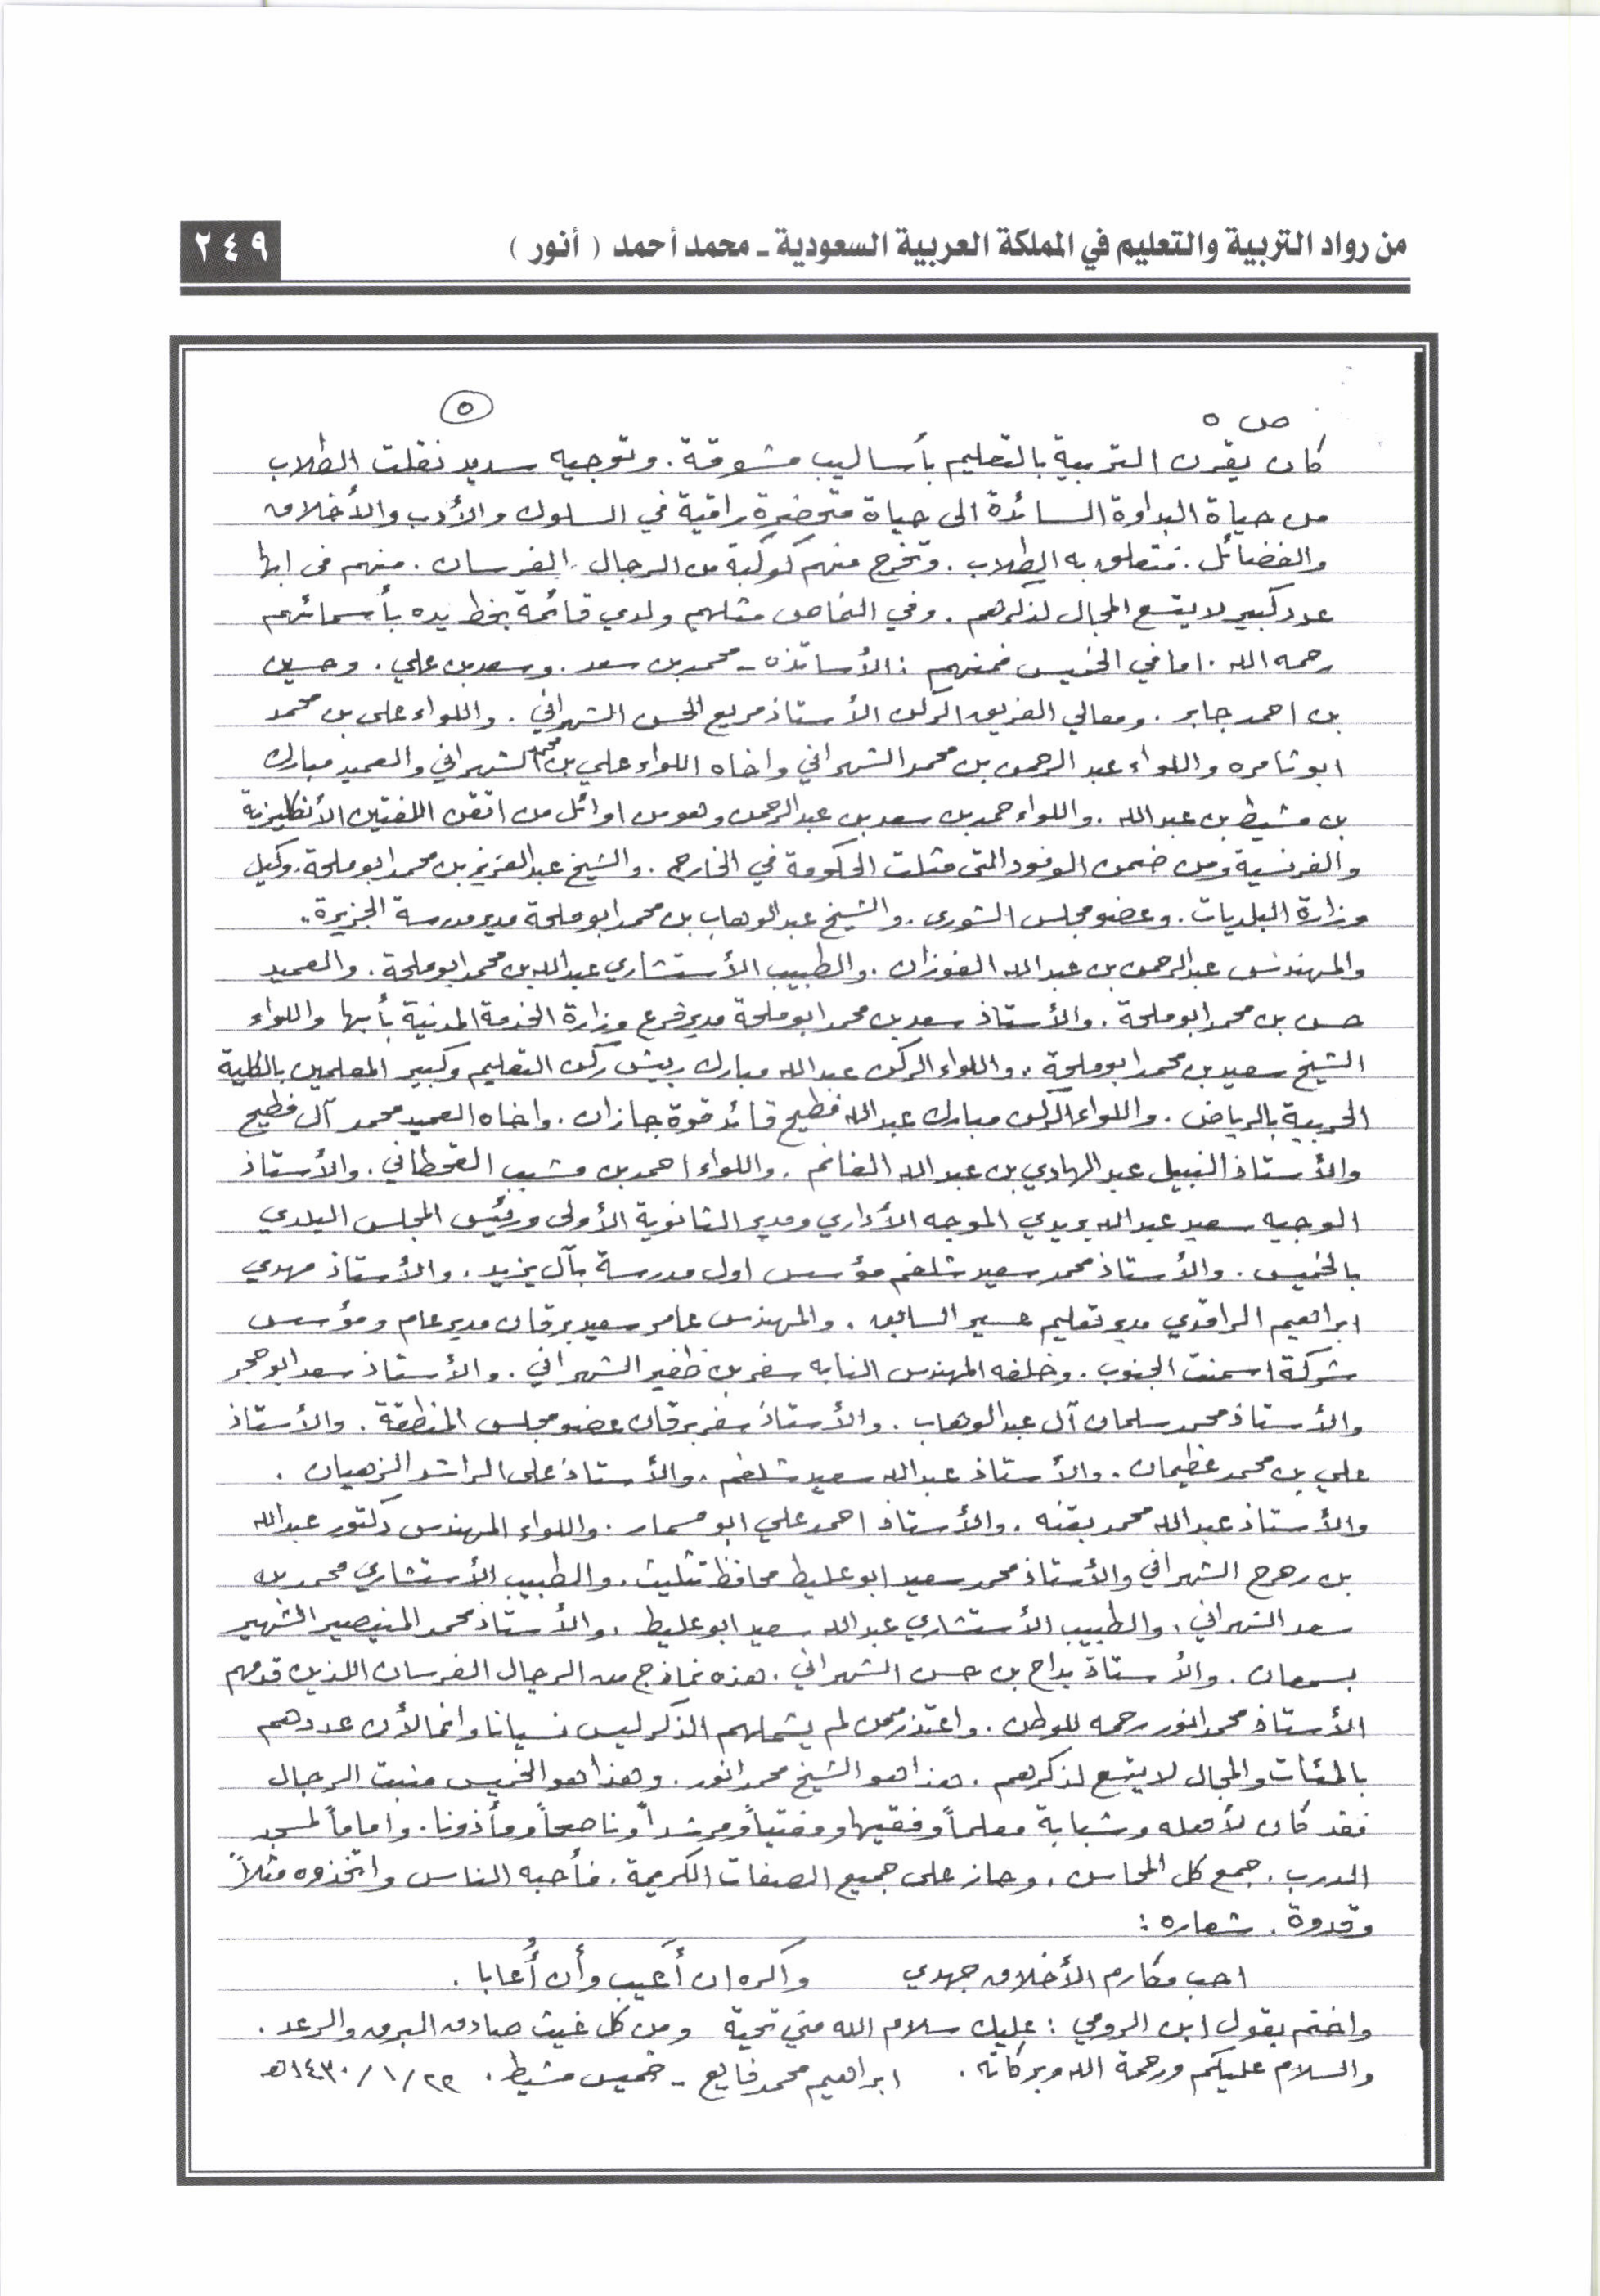 من رواد التربية والتعليم في المملكة العربية السعودية ـ محمد أحمد ( أنور )
٢٤٩
ص ٥
٥
كان يقرن التربية بالتعليم بأساليب مشوقة . وتوجيه سديد نقلت الطلاب
من حياة البداوة السائدة الى حياة متحضرة راقية في السلوك والأدب والأخلاق
والفضائل . فتعلق به الطلاب . وتخرج منهم كوكبة من الرجال الفرسان . منهم في ابها
عدد كبير لا يتسع المجال لذكرهم . وفي النماص مثلهم ولدي قائمة بخط يده بأسمائهم
رحمه الله . اما في الخميس فمنهم : الأساتذه ـ محمد بن سعد . وسعد بن علي . وحسين
بن احمد جابر . ومعالي الفريق الركن الأستاذ مريع الحسن الشهراني . واللواء على بن محمد
ابو ثامره واللواء عبد الرحمن بن محمد الشهراني واخاه اللواء علي بن محمد الشهراني والعميد مبارك
بن مشيط بن عبد الله . واللواء حمد بن سعد بن عبد الرحمن وهو من اوائل من اتقن اللغتين الأنكليزية
والفرنسية ومن ضمن الوفود التى مثلت الحكومة في الخارج . والشيخ عبد العزيز بن محمد ابو ملحة . وكيل
وزارة البلديات . وعضو مجلس الشورى . والشيخ عبد الوهاب بن محمد ابو ملحة مدير مدرسة الجزيرة ..
والمهندس عبد الرحمن بن عبد الله الفوزان . والطبيب الأستشاري عبد الله بن محمد ابو ملحة . والعميد
حسن بن محمد ابو ملحة . والأستاذ سعد بن محمد ابو ملحة مدير فرع وزارة الخدمة المدنية بأبها واللواء
الشيخ سعيد بن محمد ابو ملحة . واللواء الركن عبد الله مبارك رييس ركن التعليم وكبير المعلمين بالكلية
الحربية بالرياض . واللواء الركن مبارك عبد الله فطيح قائد قوة جازان . واخاه العميد محمد آل فطيح
والأستاذ النبيل عبد الهادي بن عبد الله الغانم . واللواء احمد بن مشبب القحطاني . والأستاذ
الوجيه سعيد عبد الله بريدي الموجه الأداري ومدير الثانوية الأولى ورئيس المجلس البلدي
بالخميس . والأستاذ محمد سعيد شلغم مؤسس اول مدرسة بآل يزيد . والأستاذ مهدي
ابراهيم الراقدي مدير تعليم عسير السابق . والمهندس عامر سعيد برقان مدير عام ومؤسس
شركة اسمنت الجنوب . وخلفه المهندس النابه سفر بن ظفير الشهراني . والأستاذ سعد ابو حجر
والأستاذ محمد سلمان آل عبد الوهاب . والأستاذ سفر برقان عضو مجلس المنطقة . والأستاذ
علي بن محمد غظيمان . والأستاذ عبد الله سعيد شلغم . والأستاذ على الراشد الزهيان .
والأستاذ عبد الله محمد بقنه . والأستاذ احمد علي ابو مسمار . واللواء المهندس دكتور عبد الله
بن رهرج الشهراني والأستاذ محمد سعيد ابو عليط محافظ تثليث . والطبيب الأستشاري محمد بن
سعد الشهراني . والطبيب الأستشاري عبد الله سعيد ابو عليط . والأستاذ محمد المنيصير الشهير
بسمعان . والأستاذ بداح بن حسن الشهراني . هذه نماذج من الرجال الفرسان اللذين قدمهم
الأستاذ محمد انور رحمه للوطن . واعتذر ممن لم يشملهم الذكر ليس نسيانا وانما لأن عددهم
بالمئات والمجال لا يتسع لذكرهم . هذا هو الشيخ محمد انور . وهذا هو الخميس منبت الرجال
فقد كان لأهله وشبابة معلماً وفقيها ومفتياً ومرشداً وناصحاً ومأذونا . واماماً لمسجد
الدرب . جمع كل المحاسن . وحاز على جميع الصفات الكريمة . فأحبه الناس واتخذوه مثلاً
وقدوة . شعاره :
احب مكارم الأخلاق جهدي واكره ان أعيب وأن أُعابا .
واختم بقول ابن الرومي : عليك سلام الله مني تحية ومن كل غيث صادق البرق والرعد .
والسلام عليكم ورحمة الله وبركاته . ابراهيم محمد فايع ـ خميس مشيط . ٢٢ / ١ / ١٤٣٠هـ